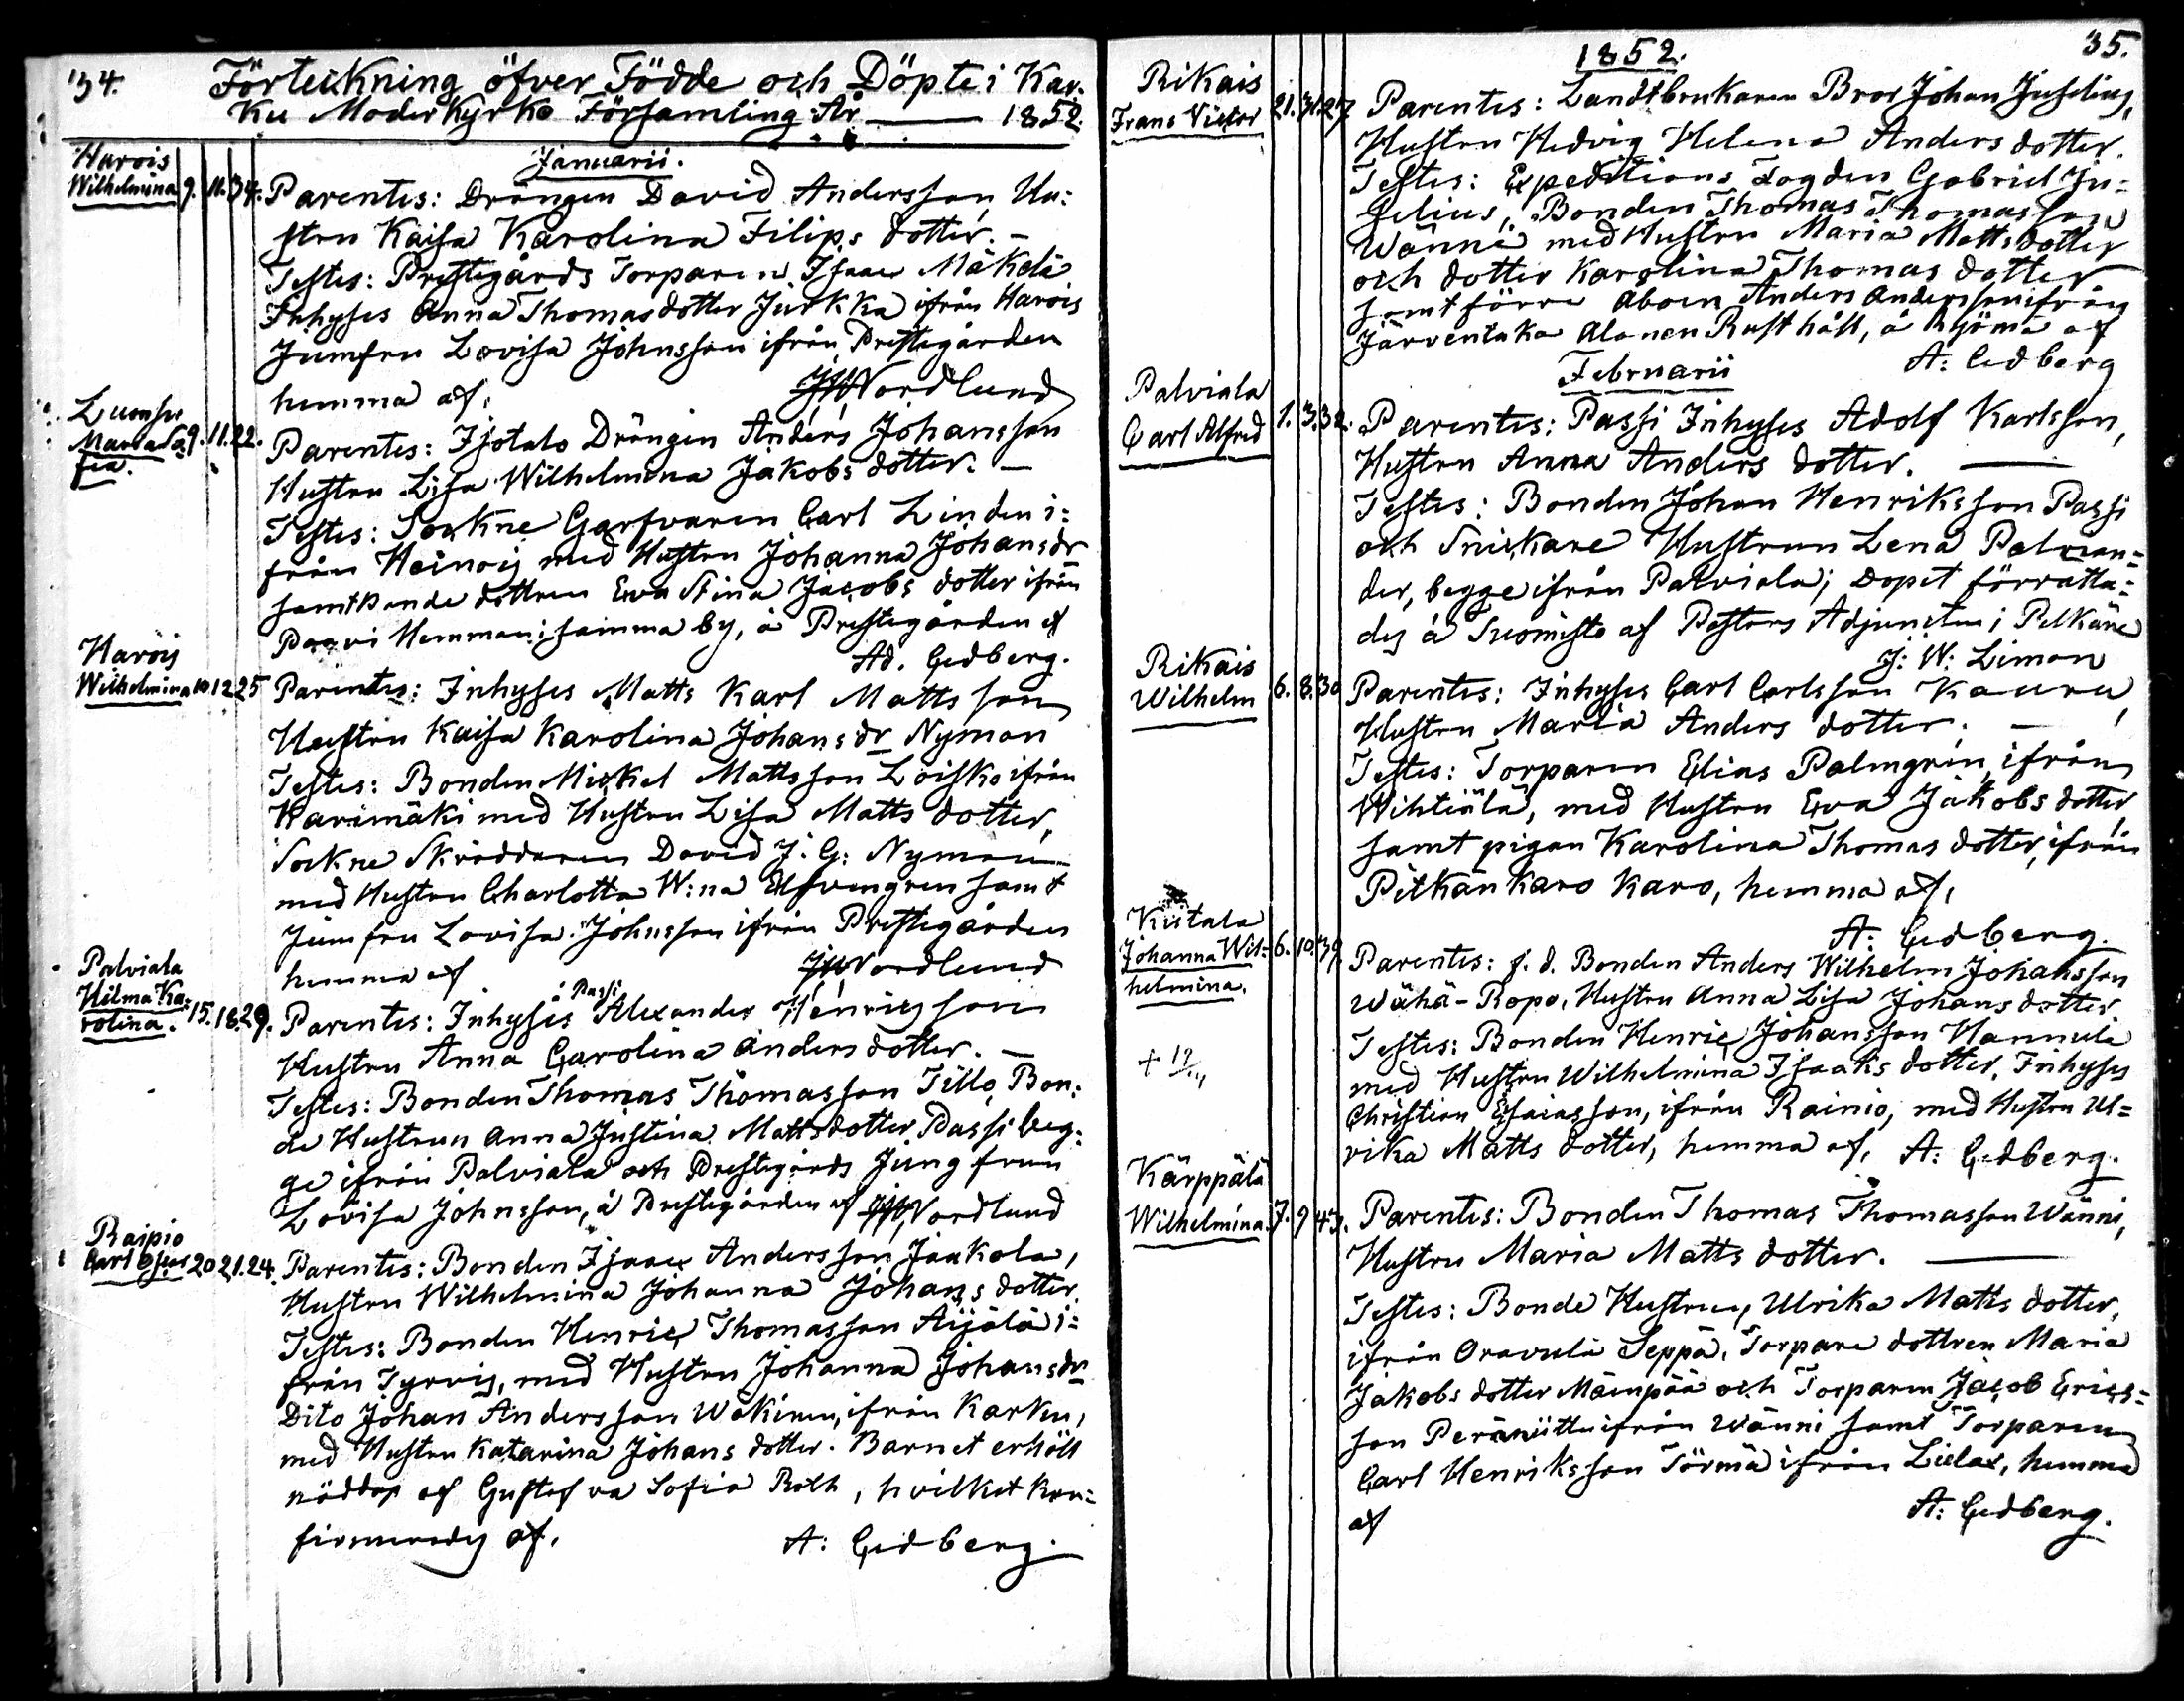 34.
Förteckning öfver Födde och Döpte i Kar-
Ku Moderkyrko Församling År 1852.
Januarii.
Harois
Wilhelmina 9. 11. 34.
Parentes: Drängen David Andersson, Hu-
stru Kaisa Karolina Filips dotter. —
Testes: Prestegårds Torparen Isaac Mäkelä
Inhyses Anna Thomasdotter Jurkka ifrån Harois
Jumfru Lovisa Johnsson ifrån Prestegården
hemma af, JWNordlund
Maria So-
fia. 9. 11. 22.
Parentes: Isotalo Drängen Anders Johansson
Hustru Lisa Wilhelmina Jakobs dotter. —
Testes: Sockne Garfvaren Carl Linden i-
från Heinois med Hustru Johanna Johansdr
samt Bonde dottren Eva Stina Jacobs dotter ifrån
Paavi Hemman i samma by, å Prestegården af
Ad. Gedberg.
Harois
Wilhelmina 10 12 25
Parentes: Inhyses Matts Karl Matts son
Hustru Kaisa Karolina Johans dr Nyman
Testes: Bonden Mickel Mattsson Loisko ifrån
Karimäki med Hustru Lisa Matts dotter,
Sockne Skräddaren David J. G: Nyman
med Hustru Charlotta W:na Elfvengren samt
Jumfru Lovisa Johnsson ifrån Prestegården
hemma af JWNordlund
Palviala
Hilma Ka-
rolina. 15. 18. 29.
Parentes: Inhyses å Passi Alexander Henricsson
Hustru Anna Carolina Anders dotter. —
Testes: Bonden Thomas Thomasson Tillo, Bon-
de Hustrun Anna Justina Mattsdotter Passi beg-
ge ifrån Palviala och Prestegårds Jungfrun
Lovisa Johnsson, å Prestegården af JWNordlund
Raipio
Carl 20 21. 24.
Parentes: Bonden Isaac Andersson Jaakola,
Hustru Wilhelmina Johanna Johans dotter
Testes: Bonden Henric Thomasson Äijälä i-
från Tyrvis, med Hustru Johanna Johansdr
Dito Johan Andersson Wäkinen, ifrån Karku,
med Hustru Katarina Johans dotter. Barnet erhöll
nöddop af Gustafva Sofia Roth, hvilket kon-
firmerades af, A: Gedberg.
1852. 35.
Rikais
Frans Victor 21. 31. 27
Parentes: Landtbrukaren Bror Johan Juselius,
Hustru Hedvig Helena Anders dotter.
Testes: Expeditions Fogden Gabriel Ju-
selius, Bonden Thomas Thomasson
Wänni med Hustru Maria Matts dotter
och dotter Karolina Thomas dotter
samt förre Åboen Anders Andersson ifrån
Järventaka Alanen Rusthåll, å af
A: Gedberg
Februarii
Palviala
Carl Alfred 1. 3. 32.
Parentes: Passi Inhyses Adolf Karlsson,
Hustru Anna Anders dotter. —
Testes: Bonden Johan Henriksson Passi
och Snickare Hustrun Lena Palman-
der, begge ifrån Palviala; Dopet förrätta-
des å Suomisto af Pastors Adjuncten i Pelkäne
J: W: Limon
Rikais
Wilhelm 6. 8. 30
Parentes: Inhyses Carl Carlsson Kauru,
Hustru Maria Anders dotter. —
Testes: Torparen Elias Palmgren, ifrån
Wihtiälä, med Hustru Eva Jakobs dotter,
samt pigan Karolina Thomas dotter, ifrån
Pitkänkaro Karo, hemma af,
A: Gedberg.
Kiitala
Johanna Wil- 6. 10. 39.
helmina.
Parentes: f. d. Bonden Anders Wilhelm Johansson
Wähä-Ropo, Hustru Anna Lisa Johans dotter
Testes: Bonden Henric Johansson Hannula
med Hustru Wilhelmina Isaaks dotter, Inhyses
Christian Esaiasson, ifrån Rainio, med Hustru Ul-
rika Matts dotter, hemma af, A: Gedberg.
Kärppälä
Wilhelmina 7. 9 43.
Parentes: Bonden Thomas Thomasson Wänni,
Hustru Maria Matts dotter. —
Testes: Bonde Hustrun, Ulrika Matts dotter,
ifrån Oravula Seppä, Torpare dottren Maria
Jakobs dotter Mäenpää och Torparen Jacob Erics-
son Peräniittu ifrån Wänni samt Torparen
Carl Henriksson Törmä ifrån Lielax, hemma
af A: Gedberg.